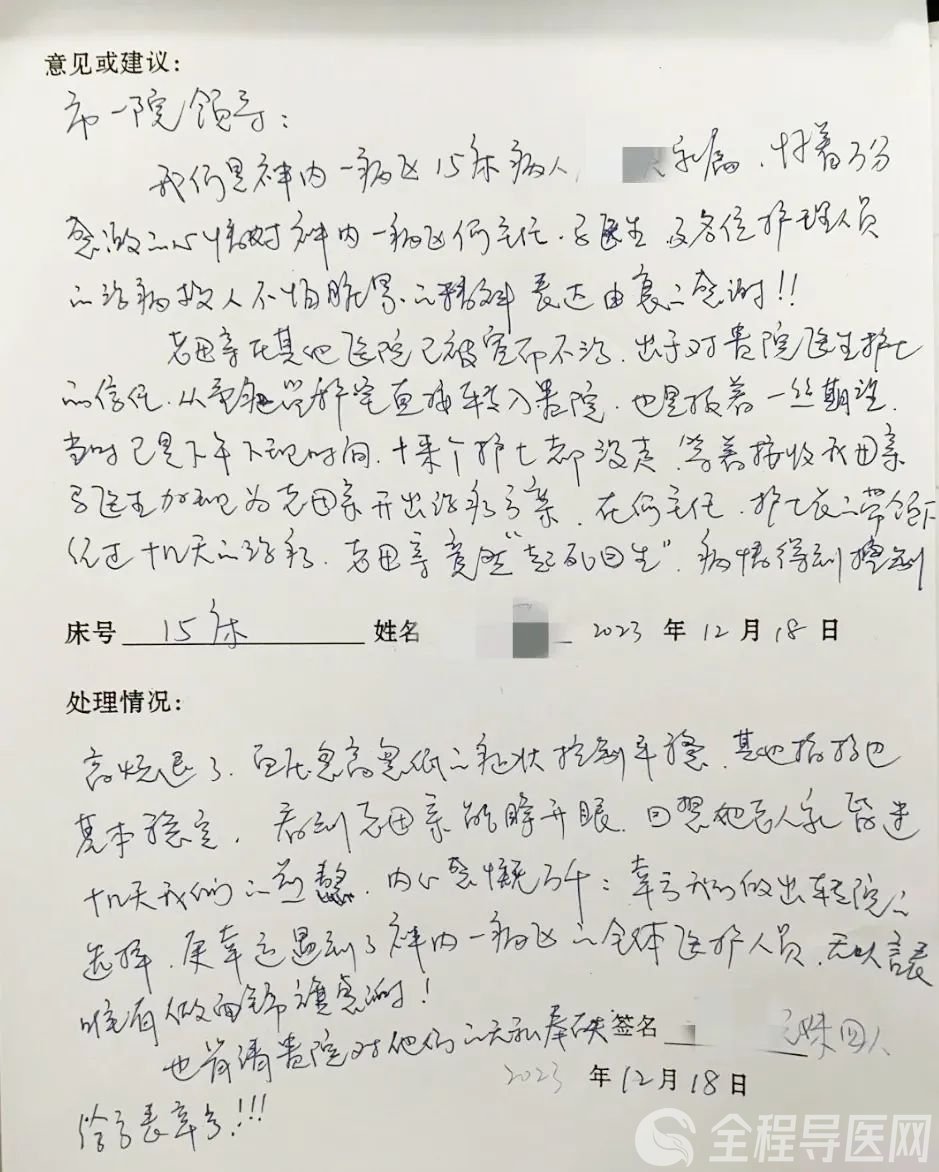 意见或建议：
市一院领导：
我们是神内一病区15床病人 家属，怀着万分
感激的心情对神内一病区何主任、马医生及各位护理人员
的治病救人不怕脏累的精神表达由衷的感谢！！
老母亲在其他医院已被宣布不治，出于对贵院医生护士
的信任，从重症监护室直接转入贵院，也是报着一丝期望，
当时已是下午下班时间，十来个护士都没走，等着接收我母亲
马医生加班为老母亲开出治疗方案，在何主任、护士长的带领下
经过十几天的治疗，老母亲竟然“起死回生”，病情得到控制
床号 15床 姓名 2023 年 12 月 18 日
处理情况：
高烧退了，血压忽高忽低的症状控制平稳，其他指标也
基本稳定，看到老母亲能睁开眼，回想她老人家昏迷
十几天我们的煎熬，内心感慨万千：幸亏我们做出转院的
选择，更幸运遇到了神内一病区的全体医护人员，无以言表
唯有做面锦旗感谢！
也肯请贵院对他们的无私奉献 签名 兄妹四人
2023 年 12 月 18 日
给予表章！!!!
全程导医网